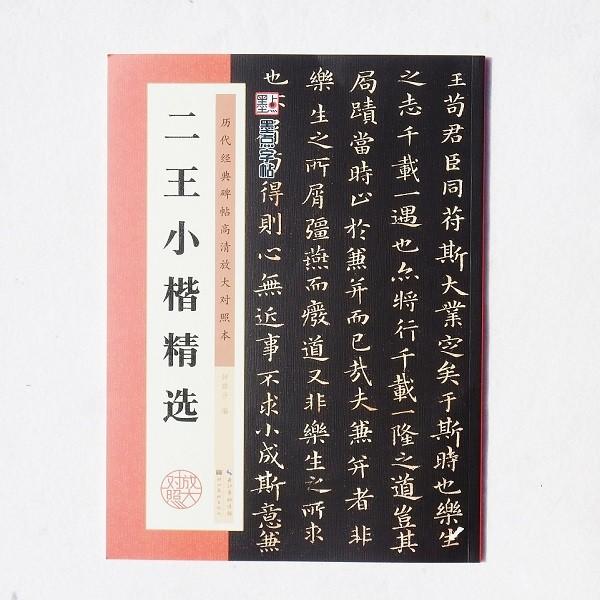 二王小楷精选
历代经典碑帖高清放大对照本
编
放大对照
墨点
墨点字帖
王苟君臣同苻斯大業定矣于斯時也樂生
之志千載一遇也亦將行千載一隆之道豈其
局蹟當時止於兼并而已哉夫兼并者非
樂生之所屑彊燕而癈道又非樂生之所求
也不苟得則心無近事不求小成斯意兼